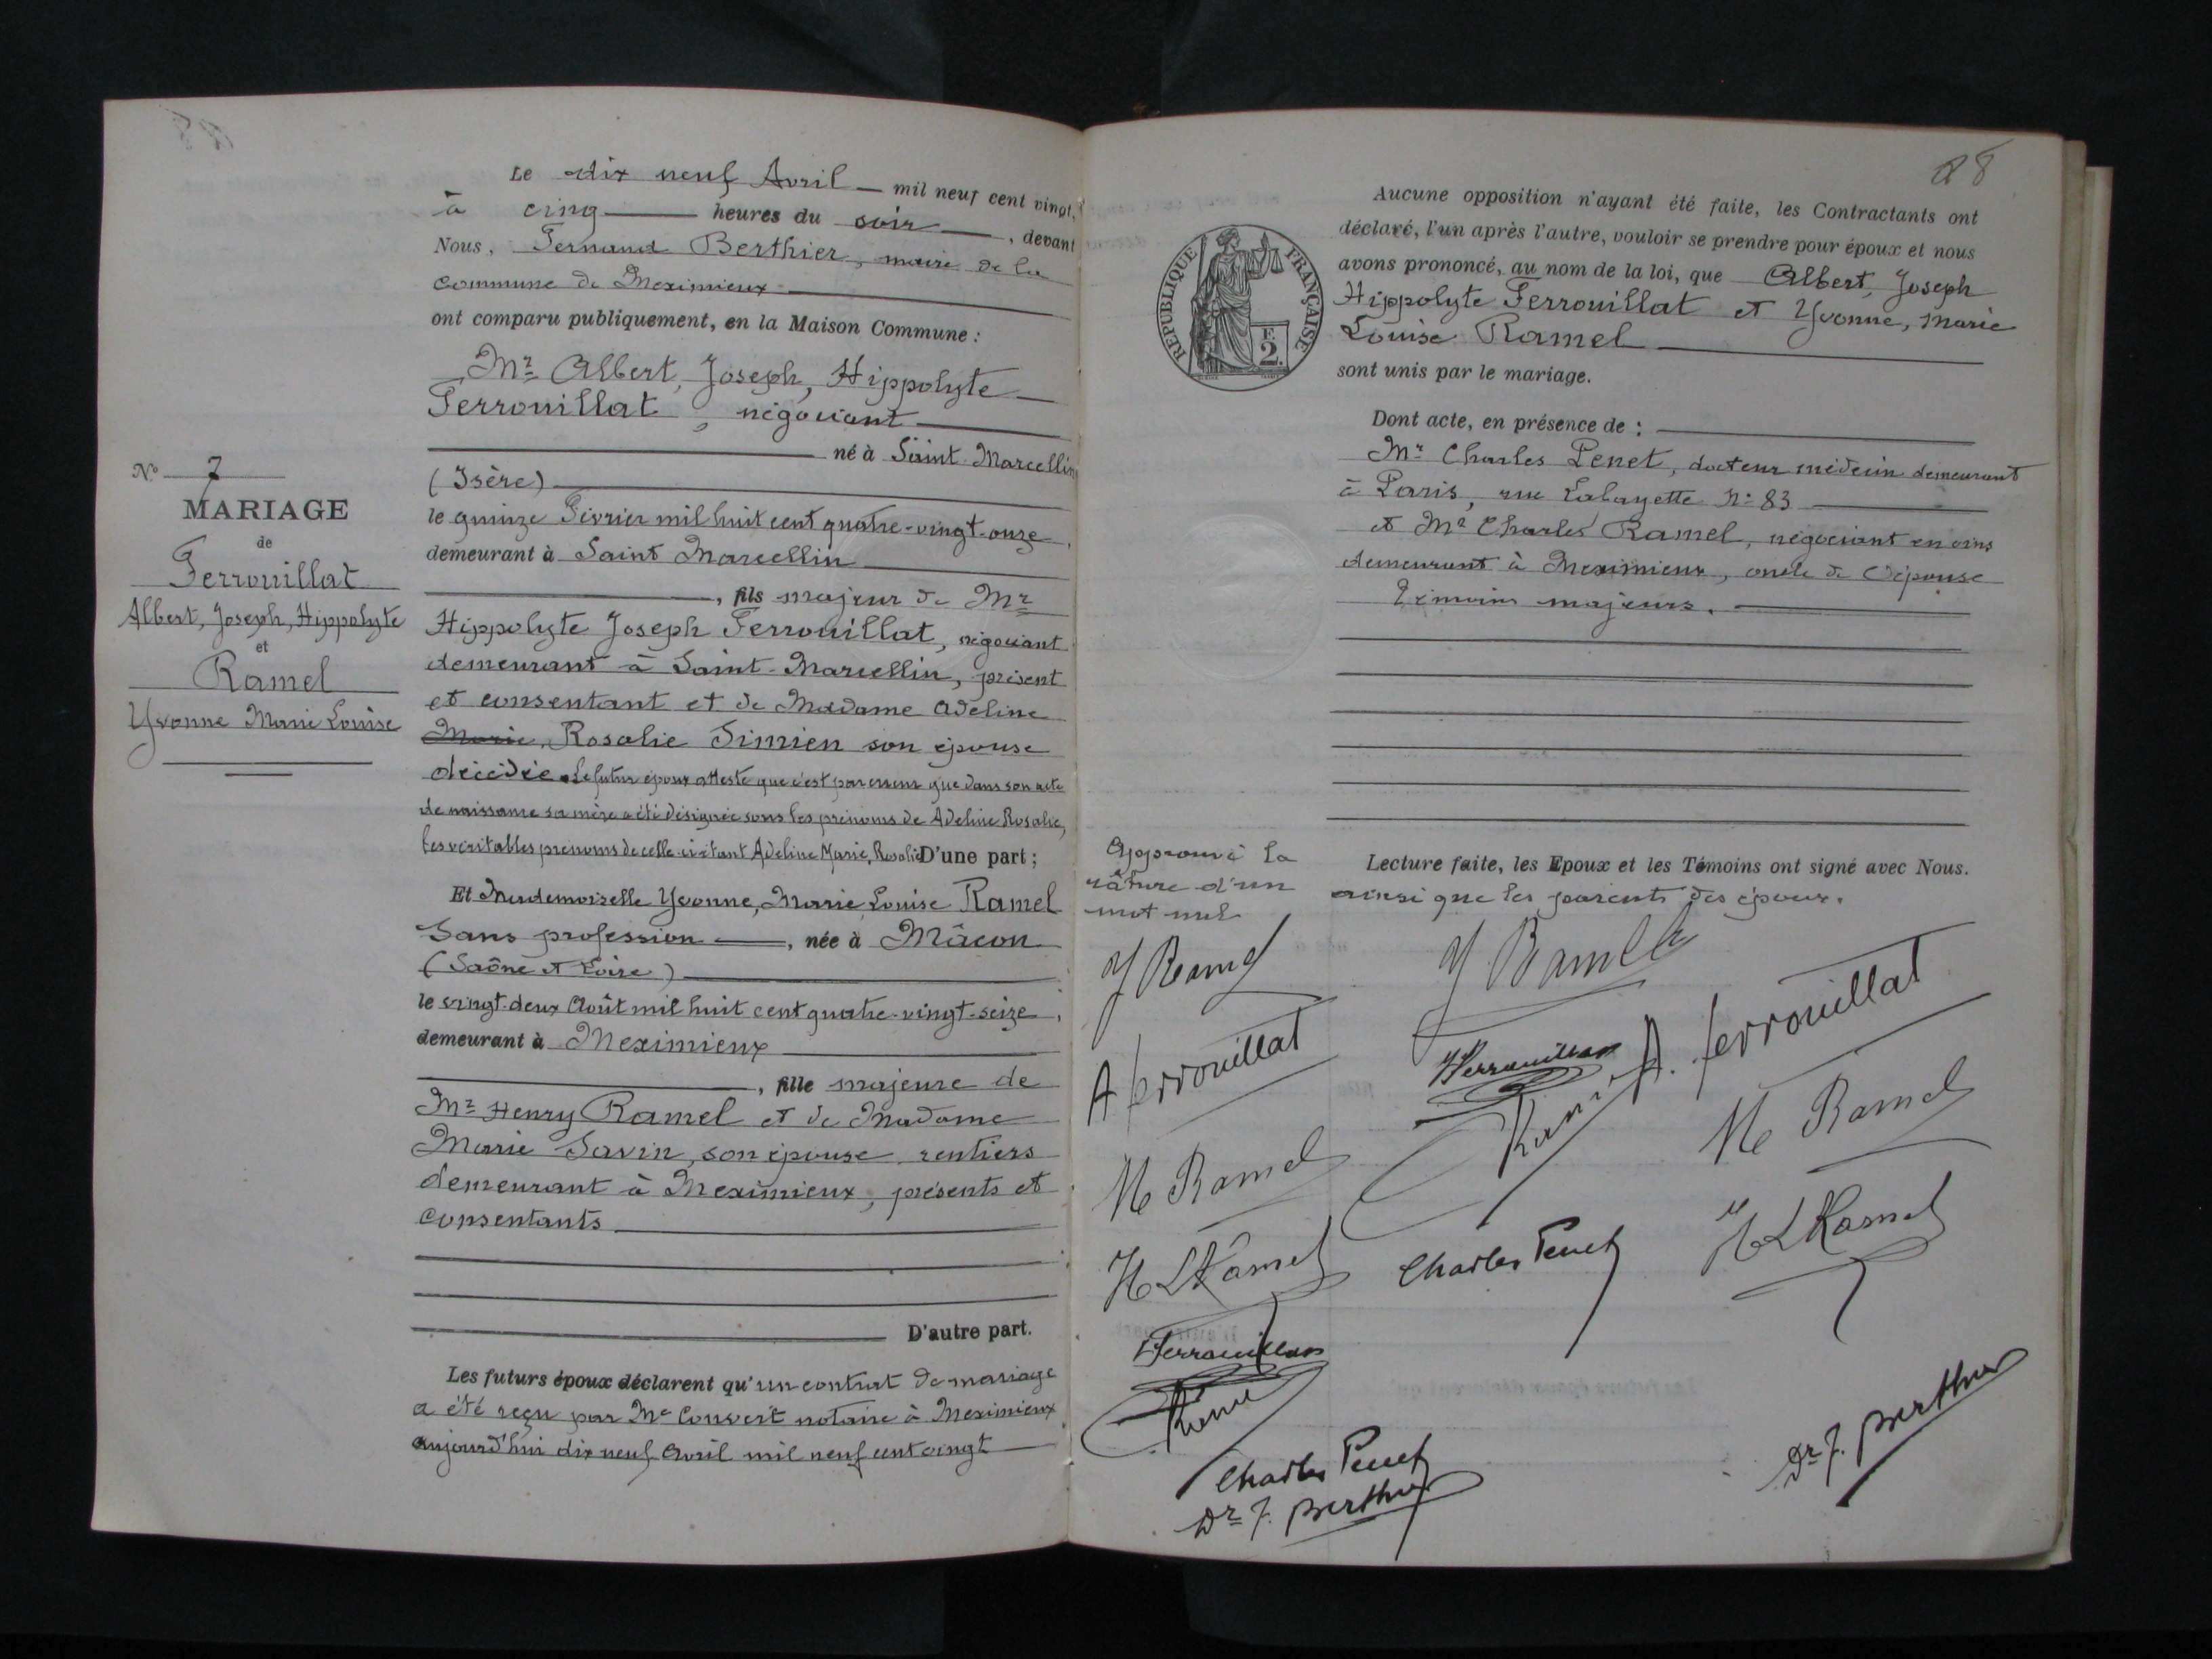 Le dix neuf Avril — mil neuf cent vingt,
à cinq — heures du soir —, devant
Nous, Fernand Berthier, maire de la
commune de Meximieux
ont comparu publiquement, en la Maison Commune :
Mr Albert, Joseph, Hippolyte
Ferrouillat, négociant
né à Saint-Marcellin
(Isère)
le quinze Février mil huit cent quatre-vingt-onze,
demeurant à Saint Marcellin
, fils majeur de Mr
Hippolyte Joseph Ferrouillat, négociant
demeurant à Saint-Marcellin, présent
et consentant et de Madame Adeline
Marie, Rosalie Simien son épouse
décédée. Le futur époux atteste que c'est par erreur que dans son acte
de naissance sa mère a été désignée sous les prénoms de Adeline Rosalie,
les véritables prénoms de celle-ci étant Adeline Marie, Rosalie D'une part ;
Et Mademoiselle Yvonne, Marie Louise Ramel
Sans profession —, née à Mâcon
(Saône et Loire)
le vingt-deux Août mil huit cent quatre-vingt-seize,
demeurant à Meximieux
, fille majeure de
Mr Henry Ramel et de Madame
Marie Savin, son épouse rentiers
demeurant à Meximieux, présents et
consentants
D'autre part.
Les futurs époux déclarent qu'un contrat de mariage
a été reçu par Me Convert notaire à Meximieux
aujourd'hui dix neuf Avril mil neuf cent vingt
No 7
MARIAGE
de
Ferrouillat
Albert, Joseph, Hippolyte
et
Ramel
Yvonne Marie Louise
28
RÉPUBLIQUE FRANÇAISE
F.
2.
Aucune opposition n'ayant été faite, les Contractants ont
déclaré, l'un après l'autre, vouloir se prendre pour époux et nous
avons prononcé, au nom de la loi, que Albert, Joseph
Hippolyte Ferrouillat et Yvonne, Marie
Louise Ramel
sont unis par le mariage.
Dont acte, en présence de :
Mr Charles Penet, docteur médecin demeurant
à Paris, rue Lafayette No 83
et Mr Charles Ramel, négociant en vins
demeurant à Meximieux, oncle de l'épouse
Témoins majeurs.
Lecture faite, les Epoux et les Témoins ont signé avec Nous.
ainsi que les parents des époux.
Approuvé la
râture d'un
mot nul
Y Ramel
A ferrouillat
M Ramel
H L Ramel
Ferrouillat
Charles Penet
Dr F. Berthier
Y Ramel
Ferrouillat
A. ferrouillat
M Ramel
Charles Penet
H L Ramel
Dr F. Berthier